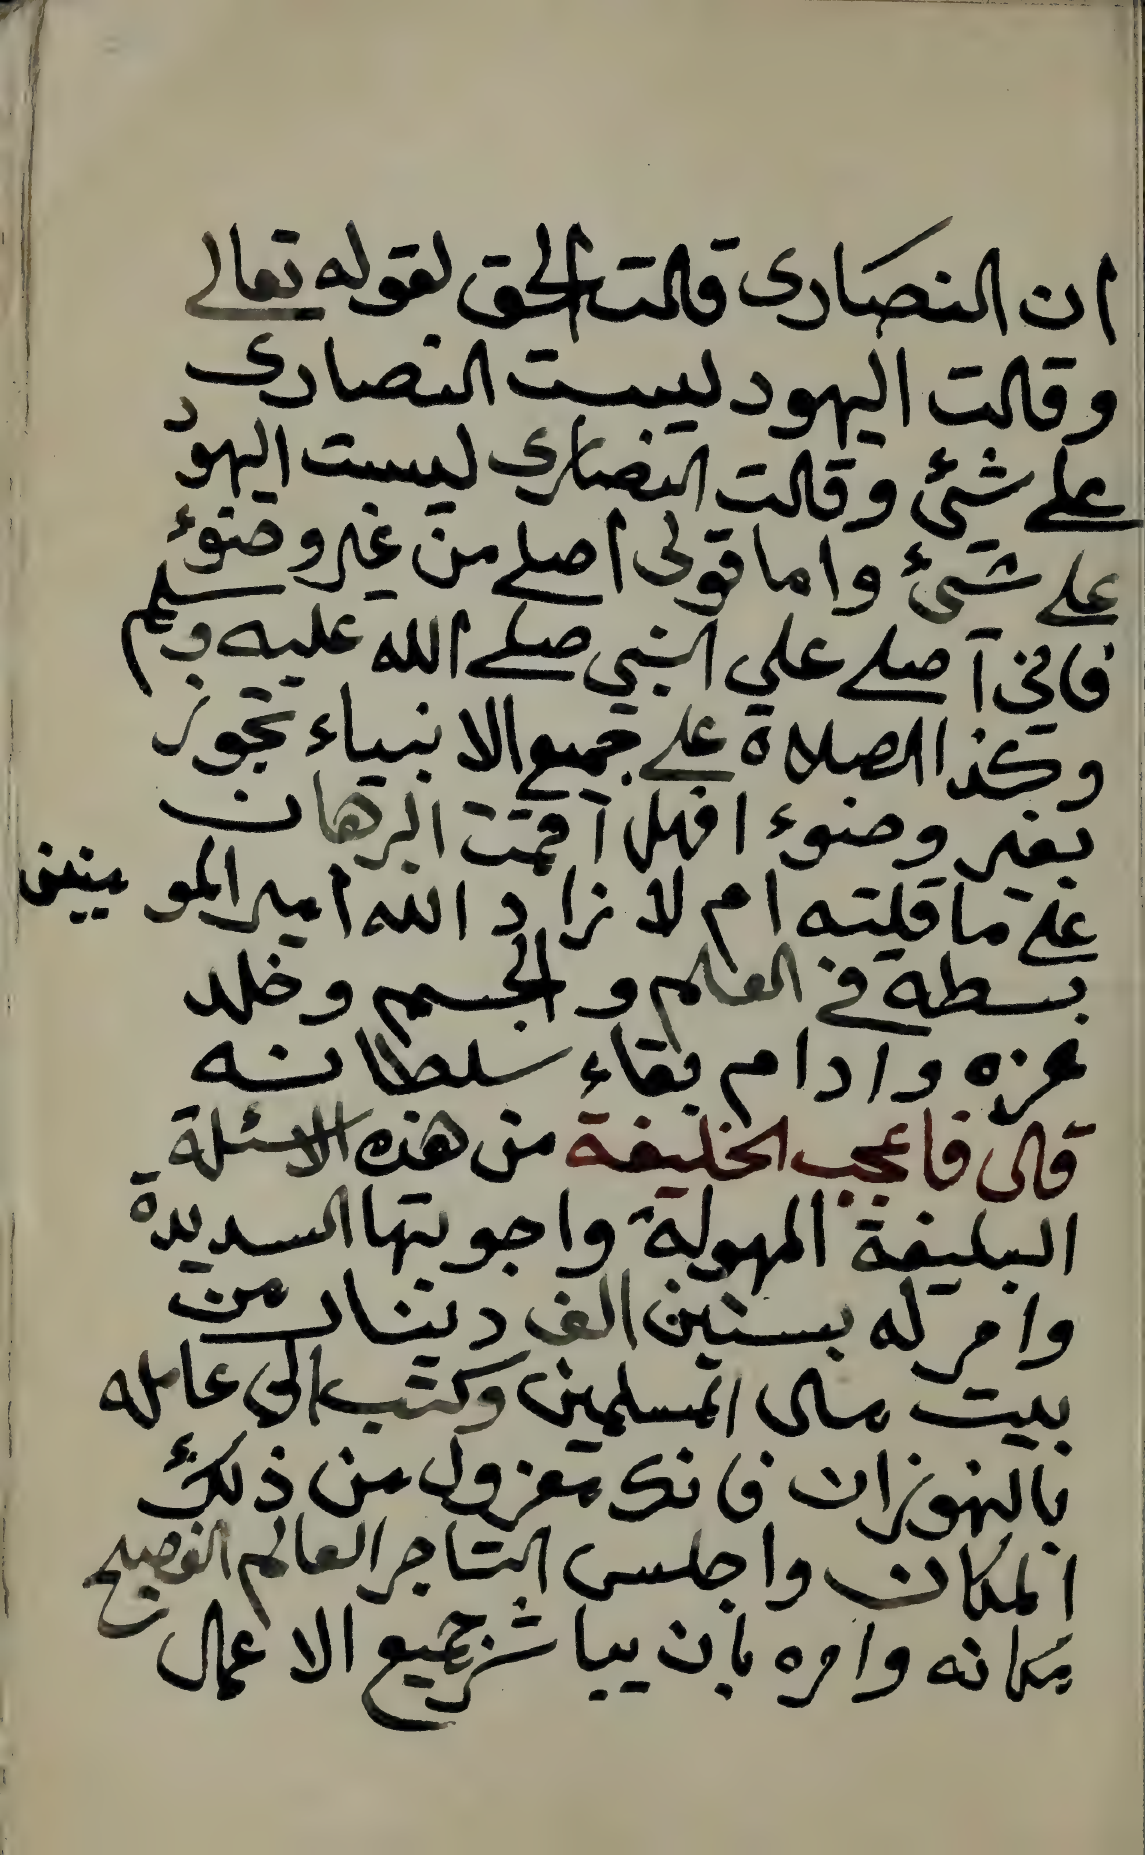 ان النصارى قالت الحق لقوله تعالى
وقالت اليهود ليست النصارى
على شئ وقالت النصارى ليست اليهود
على شئ واما قولى اصلى من غير وضوء
فاني آصلى على النبي صلى الله عليه وسلم
وكذا الصلاة على جميع الانبياء تجوز
بغير وضوء افهل آقمت البرهان
على ما قلته ام لا زاد الله امير المومينين
بسطه في العلم والجسم وخلد
عزه وادام بقاء سلطانه
قال فاعجب الخليفة من هذه الاسئلة
البليغة المهولة واجوبتها السديدة
وامر له بستين الف دينار من
بيت مال المسلمين وكتب الى عامله
بالنهوزان فانك معزول من ذلك
المكان واجلس التاجر العالم الفصيح
مكانه وامره بان يباشر جميع الاعمال